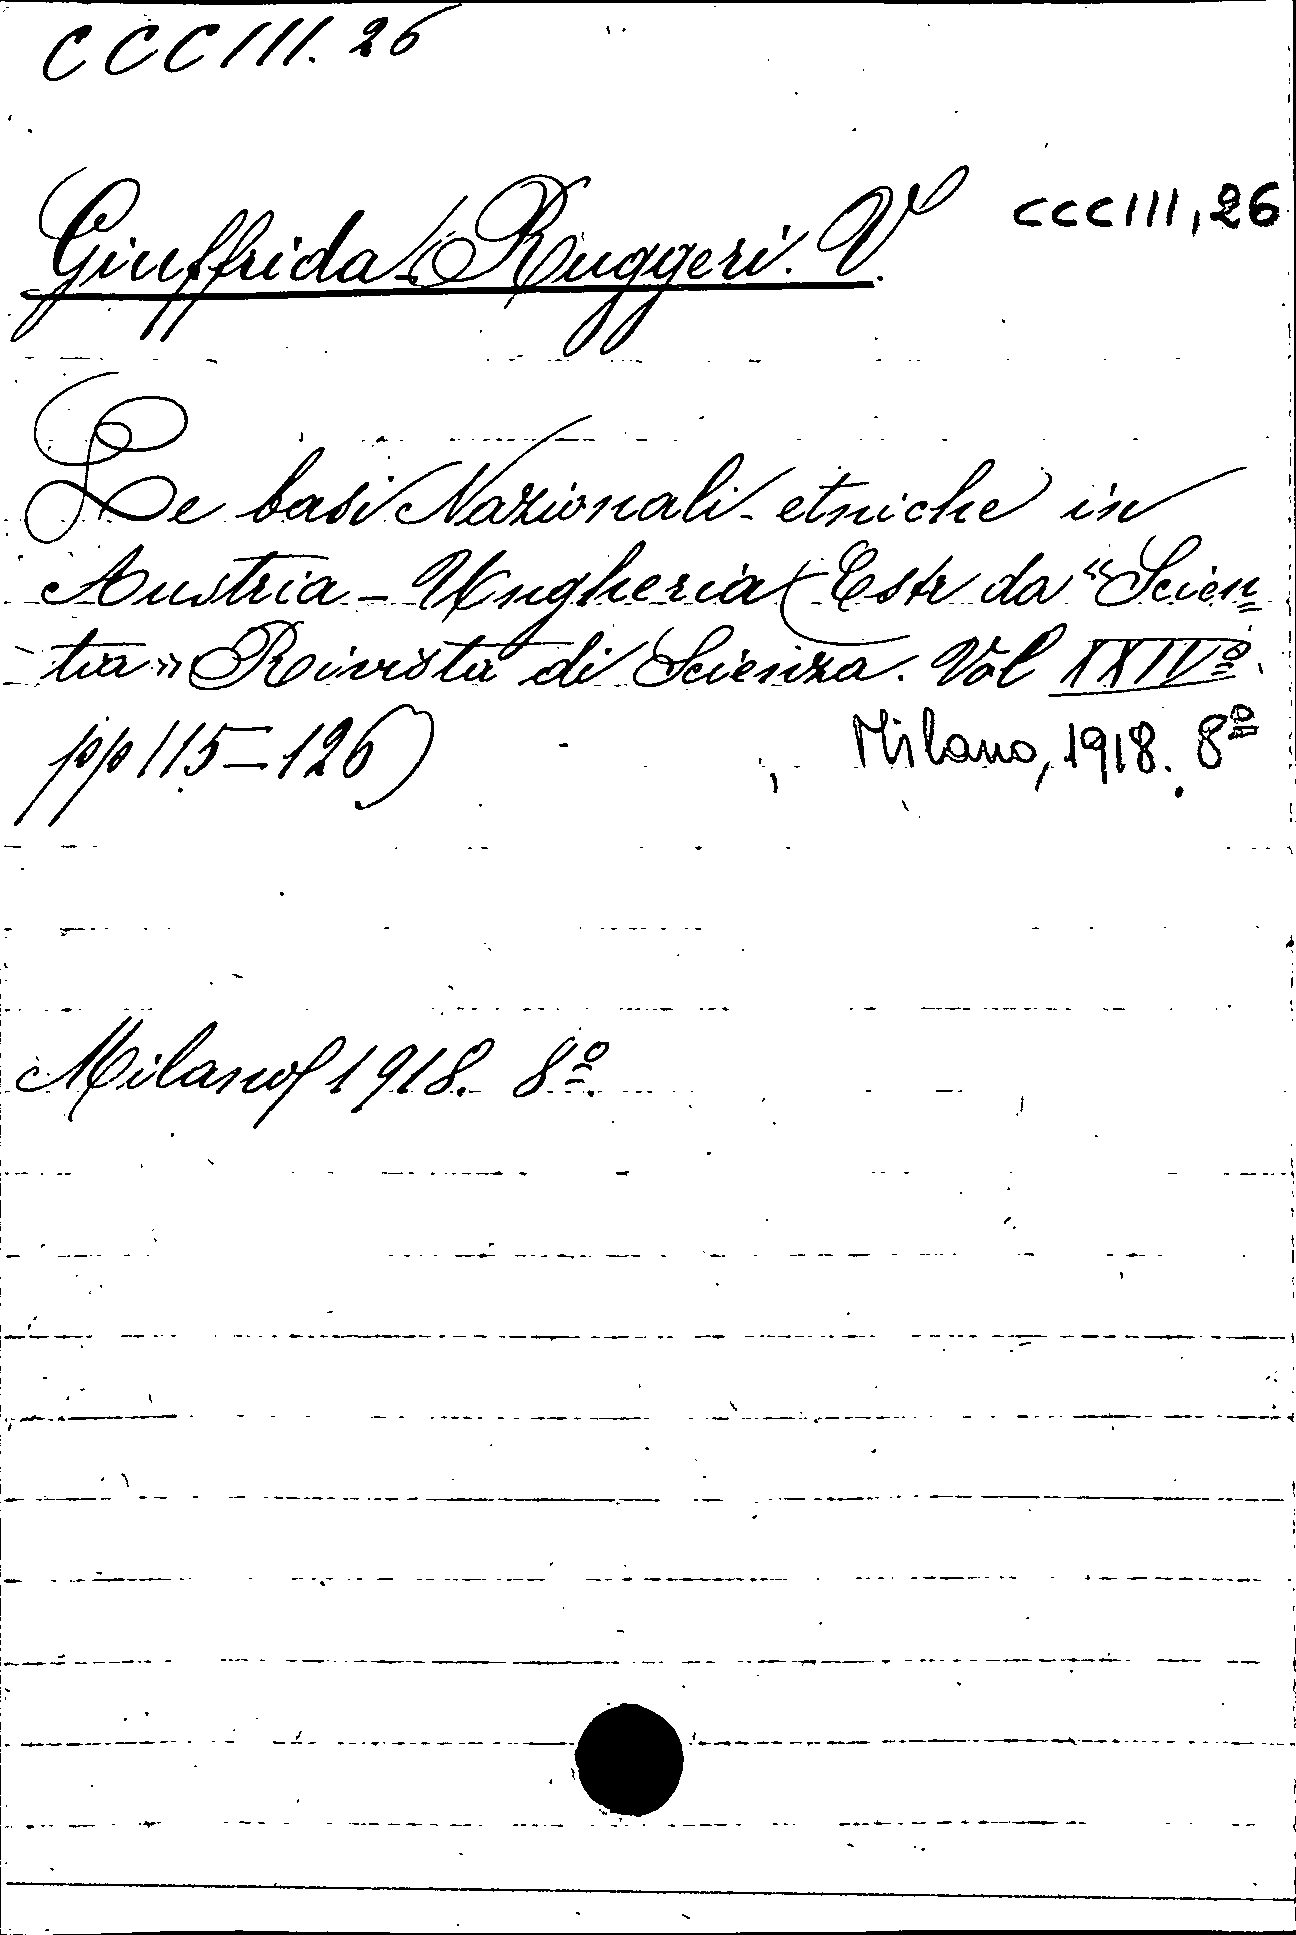 CCCIII. 26
Giuffrida-Ruggeri. V. CCCIII, 26
Le basi Nazionali-etniche in
Austria-Ungheria (Estr da "Scien=
tia" Rivista di Scienza. Vol XXIVº
pp 115-126) Milano, 1918. 8º
Milano, 1918. 8º.